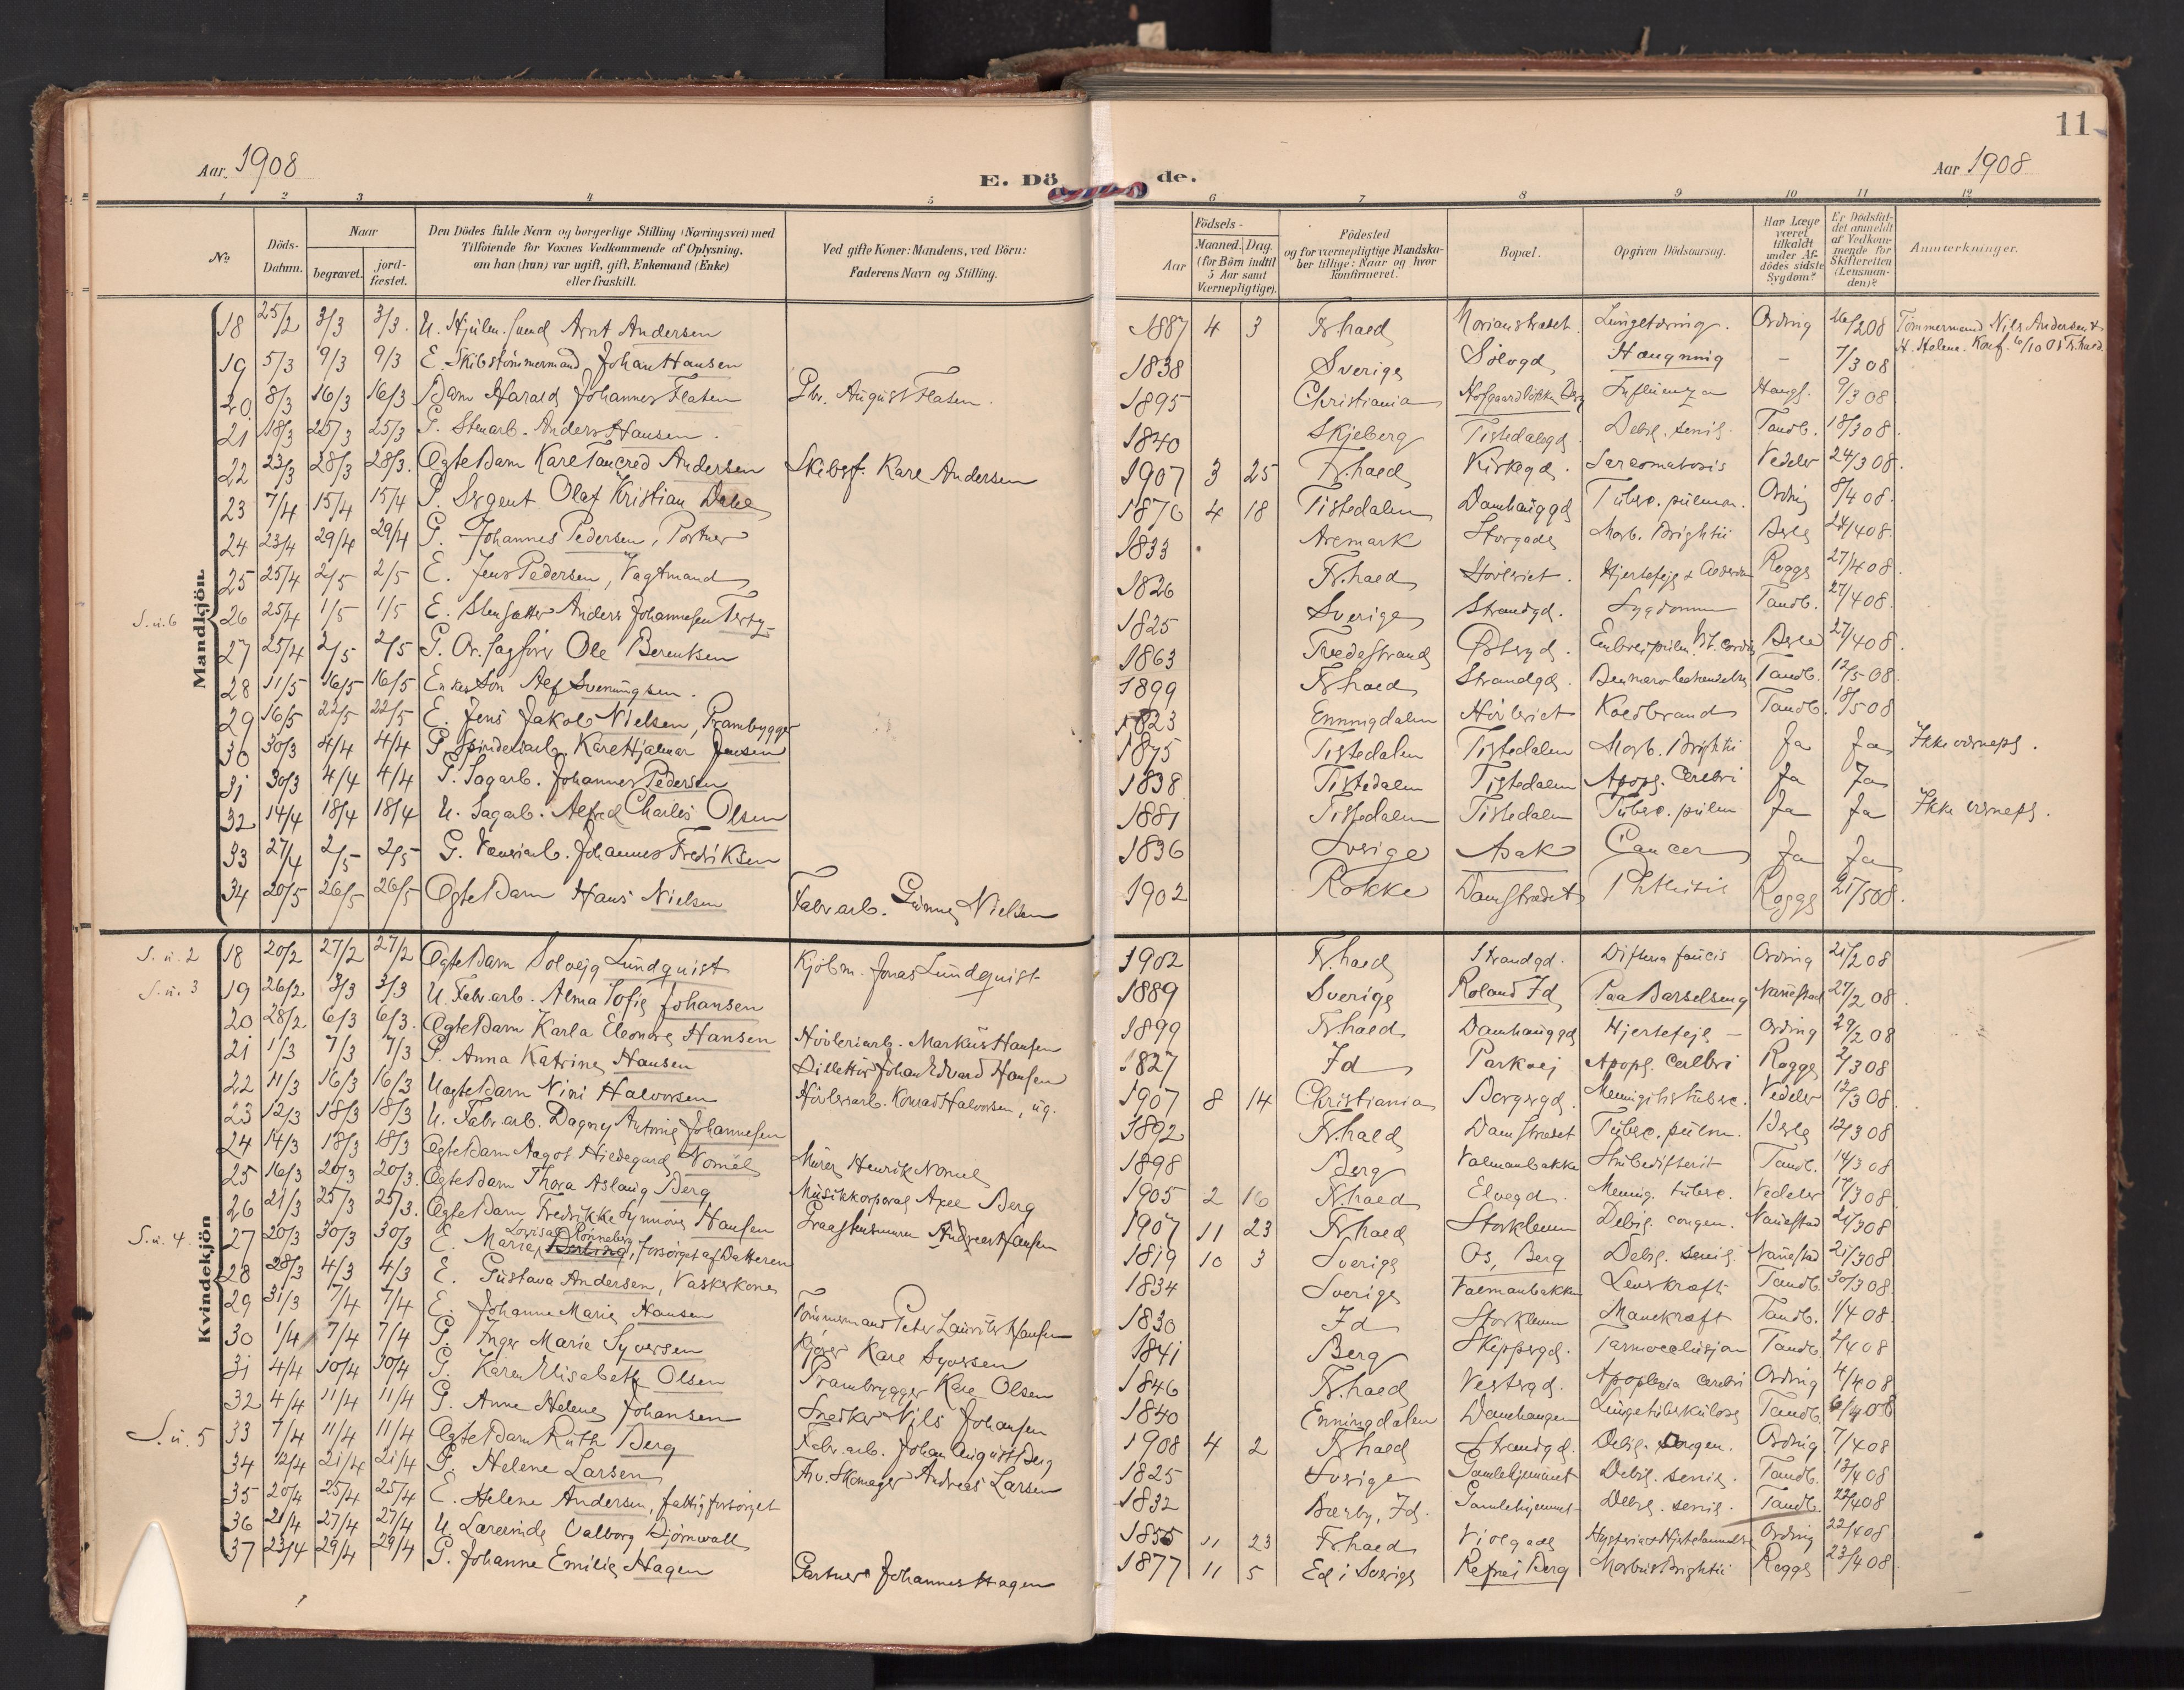 11
Aar 1908
E. Döde.
Aar 1908
1 2 3 4 5 6 7 8 9 10 11 12
No
Döds-Datum.
Naar
begravet.
jord-fæstet.
Den Dödes fulde Navn og borgerlige Stilling (Næringsvei) med
Tilföiende for Voxnes Vedkommende af Oplysning,
om han (hun) var ugift, gift, Enkemand (Enke)
eller fraskilt.
Ved gifte Koner: Mandens, ved Börn:
Faderens Navn og Stilling.
Födsels-
Aar
Maaned. Dag.
(for Börn indtil
5 Aar samt
Værnepligtige).
Födested
og for værnepligtige Mandska-
ber tillige: Naar og hvor
konfirmeret.
Bopæl.
Opgiven Dödsaarsag.
Har Læge
været
tilkaldt
under Af-
dödes sidste
Sygdom?
Er Dödsfal-
det anmeldt
af Vedkom-
mende for
Skifteretten
(Lensman-
den)?
Anmerkninger.
Mandkjön.
18 25/2 3/3 3/3. U. Hjulm.svend Arnt Andersen 1887 4 3 Fr.hald Lungetæring. Ording 26/2 08 Tömmermand Nils Andersen &
H. Helene. Konf. 6/10 01 Fr.hald.
19 5/3 9/3 9/3 E. Skibstömmermand Johan Hansen 1838 Sverige Sölvgd. Hængning – 7/3 08
20. 8/3 16/3 16/3 Barn Harald Johannes Flaten August Flaten. 1895 Christiania Influenza Haugs. 9/3 08
21 18/3 25/3 25/3 G. Stenarb. Anders Hansen. 1840 Skjeberg Tistedalsgd. Debil. senil. Tandb. 18/3 08.
22 23/3 28/3 28/3. Ægte Barn Karl Tancred Andersen Skibsf. Karl Andersen 1907 3 25 Fr.hald Kirkegd. Sarcomatosis Vedeler 24/3 08.
23 7/4 15/4 15/4 G. Sergent Olaf Kristian Dahl 1870 4 18 Tistedalen Damhauggd Tuberc. pulmon. Ording 8/4 08.
24 23/4 29/4 29/4 G. Johannes Pedersen, Portner 1833 Aremark Storgade Morb. Brightii 24/4 08.
25 25/4 2/5 2/5 E. Jens Pedersen, Vagtmand 1826 Fr.hald Hövleriet. Hjertefejl & Rogge 27/4 08.
S.u.6 26 25/4 1/5 1/5 E. Stensætter Anders Johannesen 1825 Sverige Strandgd. Sygdommen Tandb. 27/4 08.
27 25/4 2/5 2/5 G. Or. sagförer Ole Berentsen 1863 Tvedestrand Östergd. 27/4 08.
28 11/5 16/5 16/5 Enkes Sön Alf Svenningsen. 1899 Fr.hald Strandgd. Tandb. 12/5 08.
29 16/5 22/5 22/5 E. Jens Jakob Nielsen, Prambygger 1823 Enningdalen Hövleriet Koldbrand Tandb. 18/5 08
30 30/3 4/4 4/4 G. Spinderiarb. Karl Hjalmar Jensen 1875 Tistedalen Tistedalen Morb. Brightii Ja Ja Ikke værnepl.
31 30/3 4/4 4/4 G. Sagarb. Johannes Pedersen 1838 Tistedalen Tistedalen Apopl. Cerebri Ja Ja
32 14/4 18/4 18/4 U. Sagarb. Alfred Charles Olsen 1881 Tistedalen Tistedalen Tuberc. pulm Ja Ja Ikke værnepl.
33 27/4 2/5 2/5 G. Væveriarb. Johannes Fredriksen 1836 Sverige Asak Cancer Ja Ja
34 20/5 26/5 26/5 Ægte Barn Hans Nielsen Fabr.arb. Gunnar Nielsen 1902 Rokke Damstrædet Phthisis Rogge 21/5 08.
Kvindekjön
S.u. 2 18 20/2 27/2 27/2 Ægte Barn Solveig Lundquist Kjöbm. Jonas Lundquist 1902 Fr.hald Strandgd. Difteria faucis Ording 21/2 08
S.u. 3 19 26/2 3/3 3/3 U. Fabr.arb. Alma Sofie Johansen 1889 Sverige Roland Id Paa Barselseng Nannestad 27/2 08.
20 28/2 6/3 6/3. Ægte Barn Karla Eleonora Hansen Hövleriarb. Markus Hansen 1899 Fr.hald Damhauggd Hjertefejl – Ording 29/2 08
21 1/3 7/3 7/3 G. Anna Katrine Hansen Billettör Johan Edvard Hansen 1827 Id Parkvej Apopl. Cerebri Rogge 2/3 08
22 11/3 16/3 16/3 Uægte Barn Nini Halvorsen Hövleriarb. Konrad Halvorsen, ug. 1907 8 14 Christiania Borgergd. Meningitis tuberc. Vedeler 12/3 08.
23 12/3 18/3 18/3 U. Fabr.arb. Dagny Antonie Johannesen 1892 Fr.hald Damstrædet Tuberc. pulm. 12/3 08
24 14/3 18/3 18/3 Ægte Barn Aagot Hildegard Nomél Murer Henrik Nomel 1898 Berg Valmanbakke Strubedifterit Tandb. 14/3 08
25 16/3 20/3 20/3. Ægte Barn Thora Aslaug Berg Musikkorporal Axel Berg 1905 2 16 Fr.hald Elvegd. Mening. tuberc. Vedeler 17/3 08
26 21/3 25/3 25/3. Ægte Barn Fredrikke Synnöve Hansen Graastensmurer Andreas Hansen 1907 11 23 Fr.hald Storkleven Debil. congen. Nannestad 21/3 08
S.u. 4. 27 20/3 30/3 30/3 E. Marie Lovisa forsörget af Datteren 1819 10 3 Sverige Os, Berg Debil. senil. Nannestad 21/3 08
28 28/3 4/3 4/3 E. Gustava Andersen, Vaskekone 1834 Sverige Valmanbakken Tandb. 30/3 08.
29 31/3 7/4 7/4 E. Johanne Marie Hansen Tömmermand Peter Lauritz Hansen 1830 Id Storkleven Tandb. 1/4 08.
30 1/4 7/4 7/4 G. Inger Marie Syversen Kjörer Karl Syversen 1841 Berg Skippergd. Tarmocclusjon Tandb. 2/4 08
31 4/4 10/4 10/4 G. Karen Elisabeth Olsen Prambrygger Karl Olsen 1846 Fr.hald Vestergd. Apoplexia Cerebri Ording 4/4 08
32 4/4 11/4 11/4 G. Anne Helene Johansen Snedker Nils Johansen 1840 Enningdalen Damhaugen Lungetuberkulose Tandb. 6/4 08
S.u. 5 33 7/4 11/4 11/4 Ægte Barn Ruth Berg Fabr.arb. Johan August Berg 1908 4 2 Fr.hald Strandgd. Debil. congen. Ording 7/4 08
34 12/4 21/4 21/4 G. Helene Larsen Fhv. Skomager Andreas Larsen 1825 Sverige Gamlehjemmet Debil. senil. Tandb. 13/4 08
35 20/4 25/4 25/4 E. Helene Andersen, fattigforsörget 1832 Bærby, Id. Gamlehjemmet Debil. senil. Tandb. 22/4 08
36 21/4 27/4 27/4 U. Lærerinde Valborg Björnwall 1855 11 23 Fr.hald Violgade Ording 22/4 08.
37 23/4 29/4 29/4 G. Johanne Emilie Hagen Gartner Johannes Hagen 1877 11 5 Ed i Sverige Refnei Berg Morbus Brightii Rogge 23/4 08.